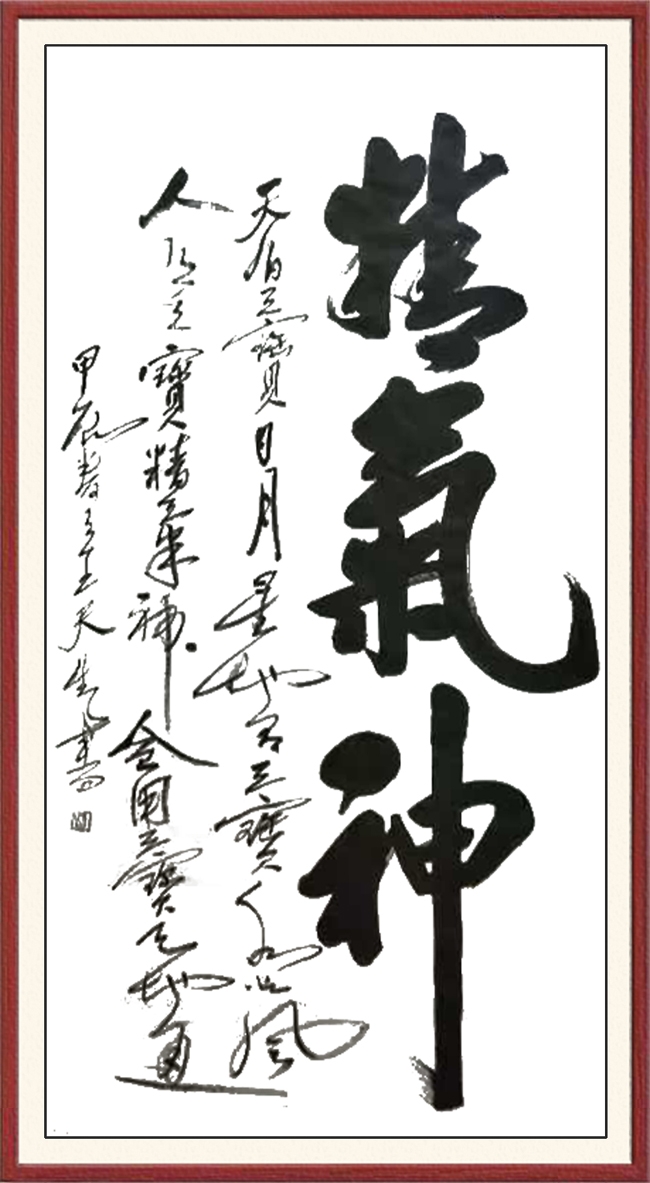 精氣神
天有三寶日月星地有三寶水火風
人有三寶精氣神會用三寶天地通
甲辰春王天生書